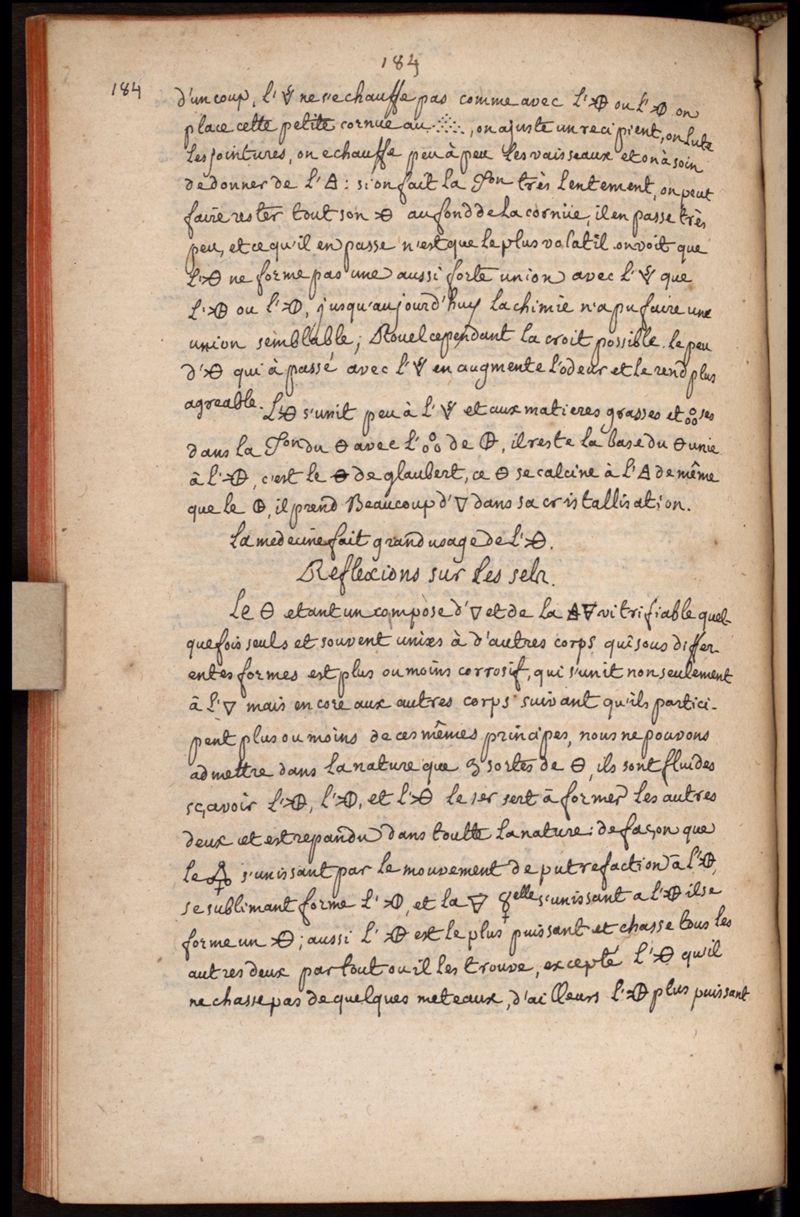 184
184
d'un coup, l'🜇 ne s'echauffe pas comme avec l'🜔 ou l' on
place cette petite cornue au ⁘, on ajuste un recipient, on lute
les jointures, on echauffe peu à peu les vaisseaux et on à soin
de donner de l'🜁 : si on fait la très lentement, on peut
faire rester tout son au fond de la cornüe, il en passe très
peu, et ce qu'il en passe n'est que le plus volatil. on voit que
l' ne forme pas une aussi forte union avec l' que
l' ou l', jusqu'aujourd'huy la chimie n'a pu faire une
union semblable, Rouel cependant la croit possible. le peu
d' qui à passé avec l' en augmente l'odeur et le rend plus
agreable. L' s'unit peu à l' et aux matieres grasses et
dans la du 🜔 avec l' de , il reste la base du 🜔 unie
à l', c'est le 🜔 de glaubert, ce 🜔 se calcine à l'🜂 de même
que le , il prend Beaucoup d'▽ dans sa cristallisation.
la medecine fait grand usage de l'.
Reflexions sur les sels.
Le 🜔 etant un compose d'▽ et de la vitrifiable quel-
quefois seuls et souvent unixs à d'autres corps qui sous differ
entes formes est plus ou moins corrosif, qui s'unit non seulement
à l'▽ mais encore aux autres corps suivant qu'ils partici-
pent plus ou moins de ces mêmes principes, nous ne pouvons
admettre dans la nature que 3 sortes de 🜔, ils sont fluides
sçavoir l', l', et l' le 1er sert à former les autres
deux et est repandu dans toutte la nature: de façon que
le 🜍 s'unissant par le mouvement de putrefaction à l',
se sublimant forme l' , et la s'unissant a l' il se
forme un ; aussi l' est le plus puissant et chasse tous les
autres deux par tout ou il les trouve, excepté l' qu'il
ne chasse pas de quelques meteaux, d'ailleurs l' plus puissant